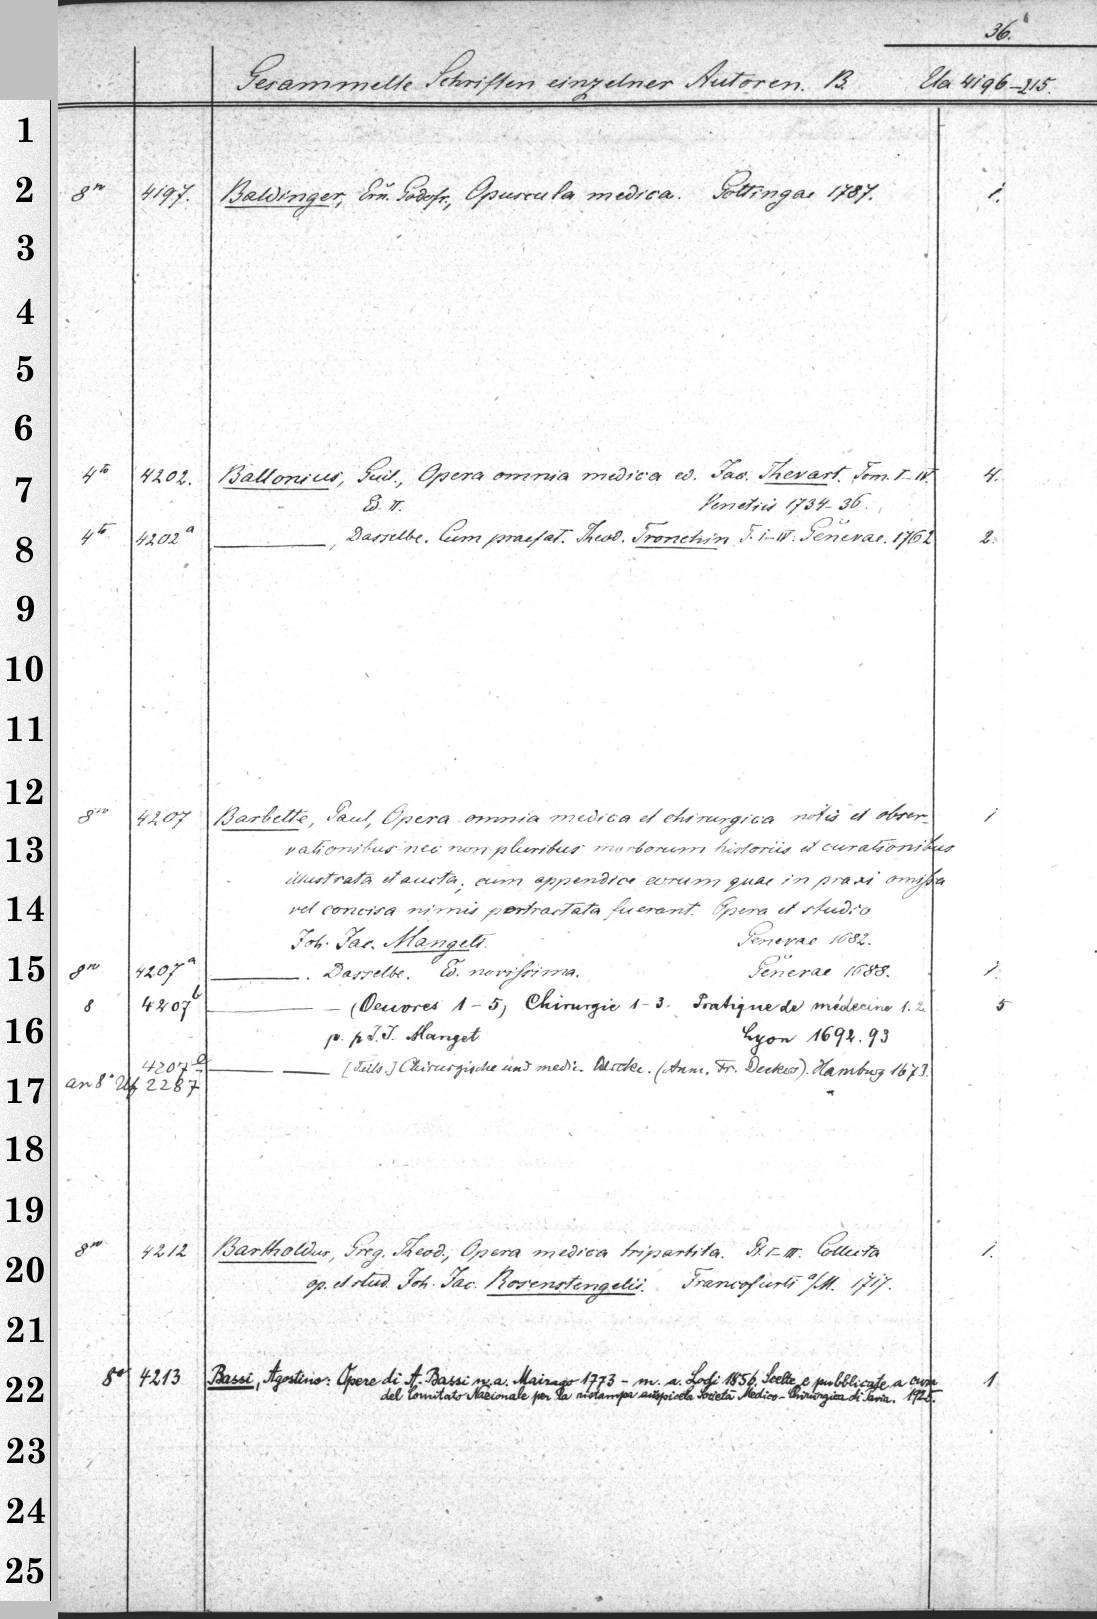 36.
Gesammelte Schriften einzelner Autoren. B. Ua 4196–215.
1
2 8vo 4197. Baldinger, Ern. Godofr., Opuscula medica. Gottingae 1787. 1.
3
4
5
6
7 4to 4202. Ballonius, Guil., Opera omnia medica ed. Jac. Thevart. Tom. I–IV. 4.
Ed. II. Venetiis 1734–36.
8 4to 4202a ———, Dasselbe. Cum praefat. Theod. Tronchin T. I–IV. Genevae. 1762 2.
9
10
11
12 8vo 4207 Barbette, Paul, Opera omnia medica et chirurgica notis et obser- 1
13 vationibus nec non pluribus morborum historiis et curationibus
illustrata et aucta, cum appendice eorum quae in praxi omissa
14 vel concisa nimis pertractata fuerant. Opera et studio
Joh. Jac. Mangeti. Genevae 1682.
15 8vo 4207a ———. Dasselbe. Ed. novissima. Genevae 1688. 1.
8 4207b ——— – (Oeuvres 1–5) Chirurgie 1–3. Pratique de médecine 1.2. 5
16 p. p J. J. Manget Lyon 1692.93
4207c ——— —— [Teils.] Chirurgische und medic. (Anm. Fr. Deckers). Hamburg 1673.
17 an 8° 2287
18
19
20 8vo 4212 Bartholdus, Greg. Theod., Opera medica tripartita. Pt. I–III. Collecta 1.
op. et stud. Joh. Jac. Rosenstengelii. Francofurti a/M. 1717.
21
22 8o 4213 Bassi, Agostino: Opere di A. Bassi n. a. Mairago 1773 – m. a. Lodi 1856. Scelte e pubblicate a cura 1
del Comitato Nazionale per la ristampa auspice la Società Medico-Chirurgica di Pavia. 1925.
23
24
25